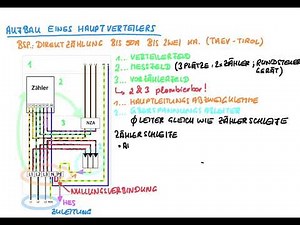 AUFBAU EINES HAUPTVERTEILERS
BSP.: DIREKTZÄHLUNG BIS 50A BIS ZWEI KA. (TAEV-TIROL)
1... VERTEILERFELD
2... MESSFELD (3 PLÄTZE, 2x ZÄHLER; RUNDSTEUER GERÄT)
3... VORZÄHLERFELD
↳ 2 & 3 plombierbar!
4... HAUPTLEITUNGS ABZWEIGKLEMME
5... ÜBERSPANNUNGS ABLEITER
Ø LEITER GLEICH WIE ZÄHLERSCHLEIFE
ZÄHLERSCHLEIFE
Zähler
NZA
L1 L2 L3 N PE
NULLUNGSVERBINDUNG
HES
ZULEITUNG